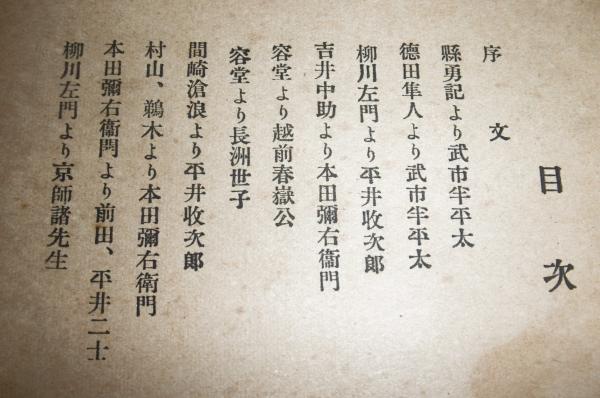 目次
序文
縣勇記より武市半平太
德田隼人より武市半平太
柳川左門より平井收次郎
吉井中助より本田彌右衞門
容堂より越前春嶽公
容堂より長洲世子
間崎滄浪より平井收次郎
村山、鵜木より本田彌右衞門
本田彌右衞門より前田、平井二士
柳川左門より京師諸先生